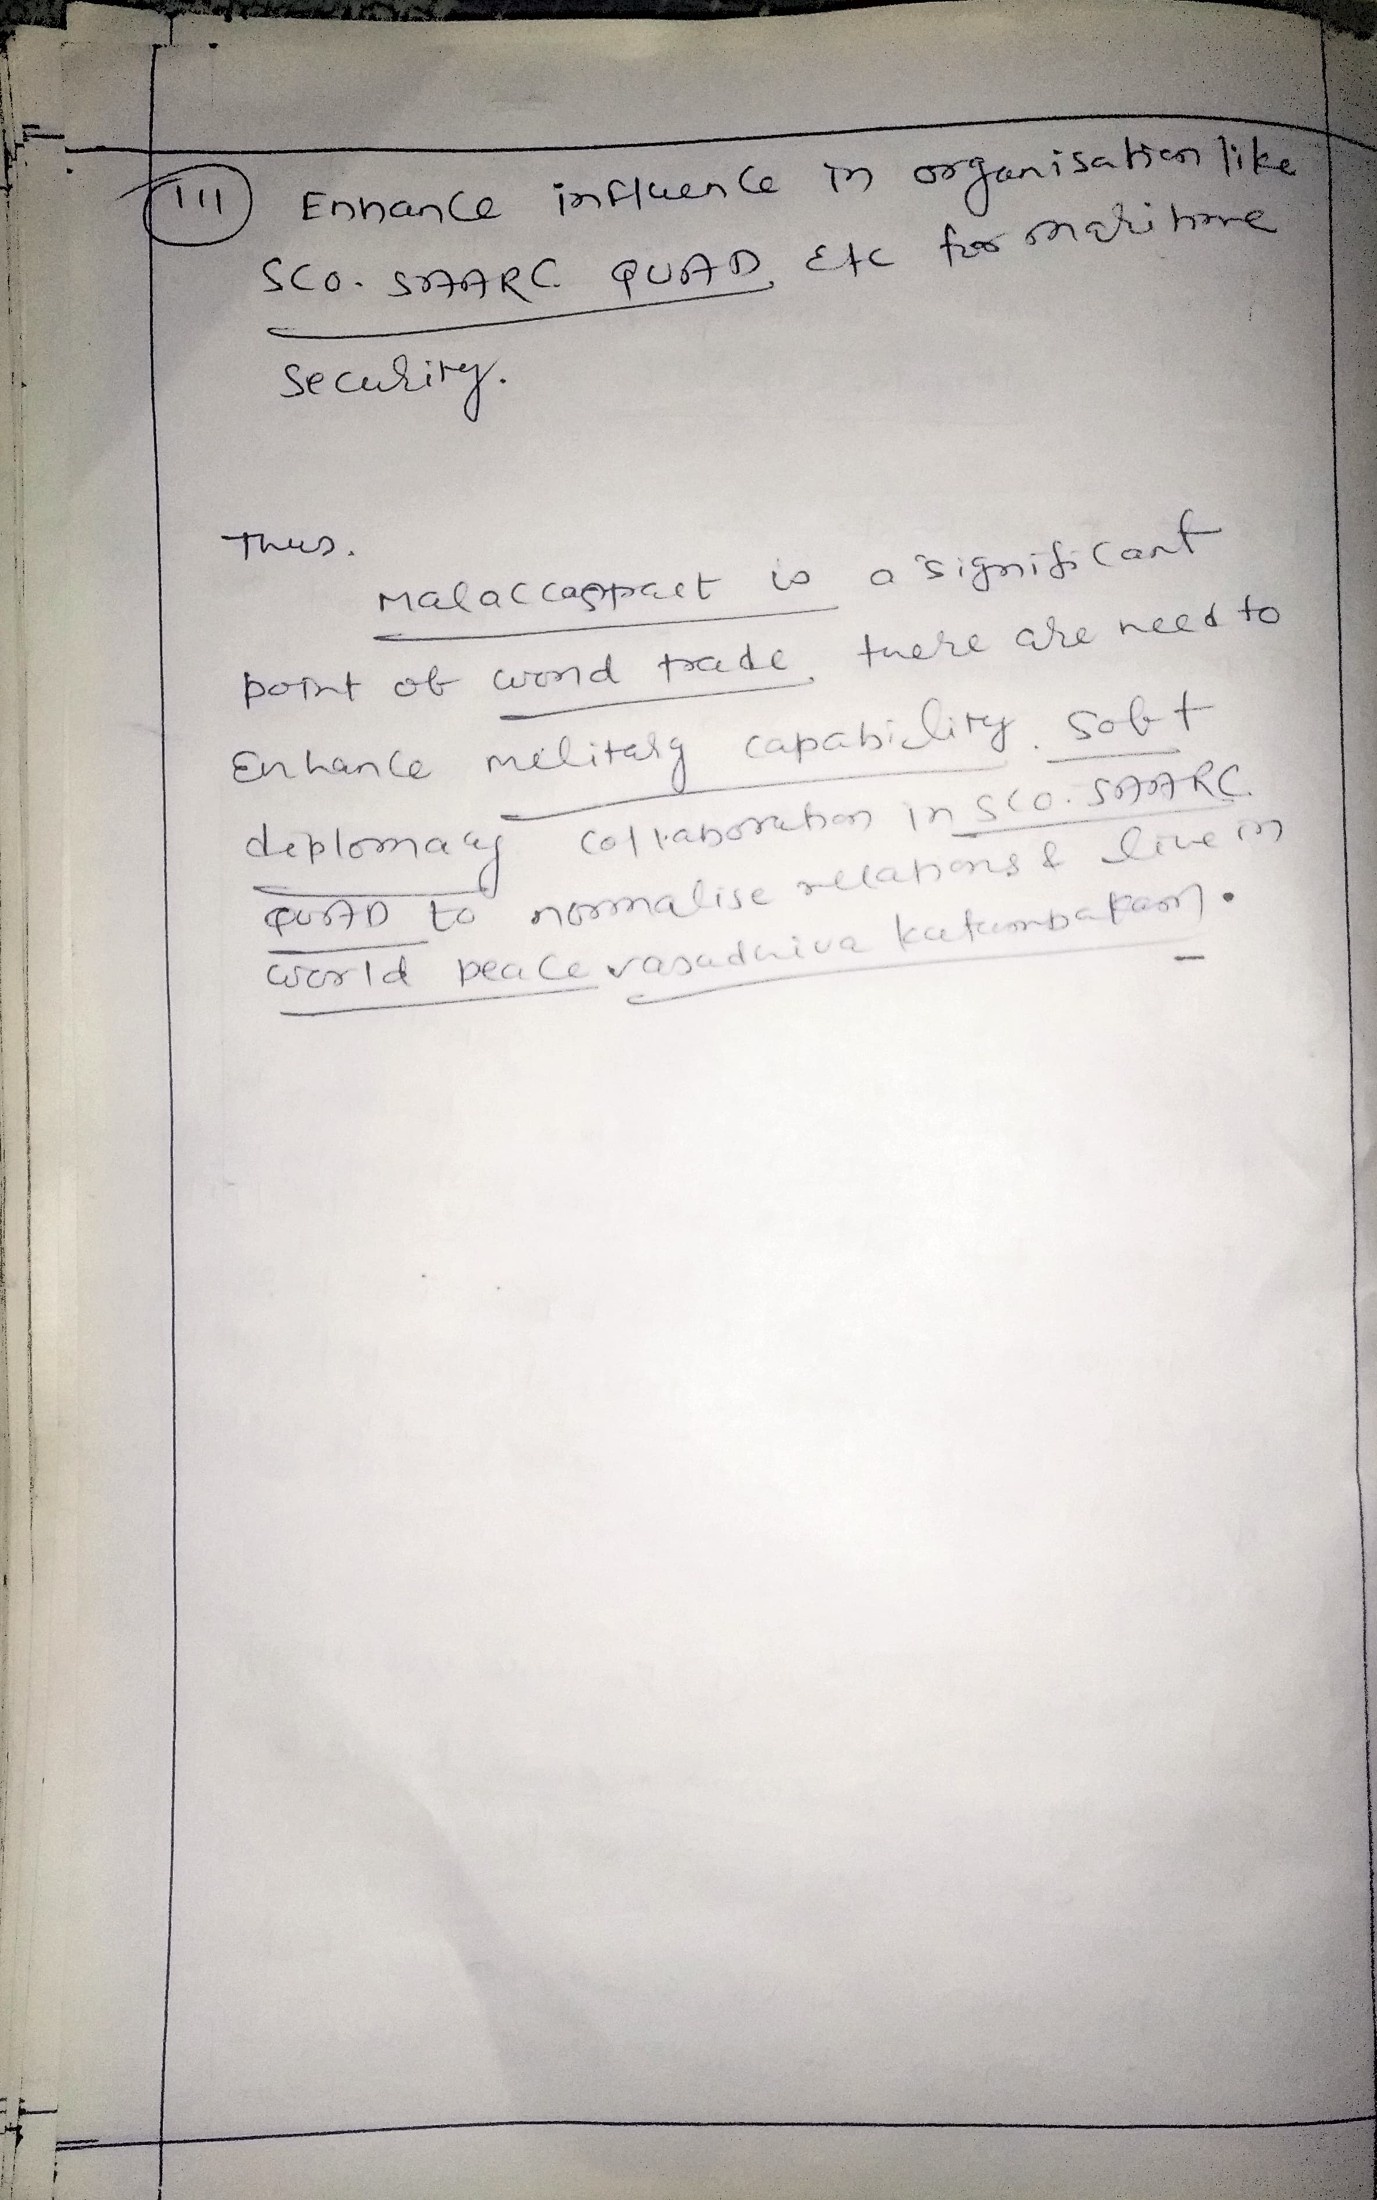 111 Enhance influence in organisation like
SCO. SAARC. QUAD, Etc for maritime
security.
Thus.
Malacca is a significant
point of world trade, there are need to
Enhance military capability. soft
deplomacy collaboration in SCO. SAARC.
QUAD to normalise relations & live in
world peace vasudhiva kutumbakam.